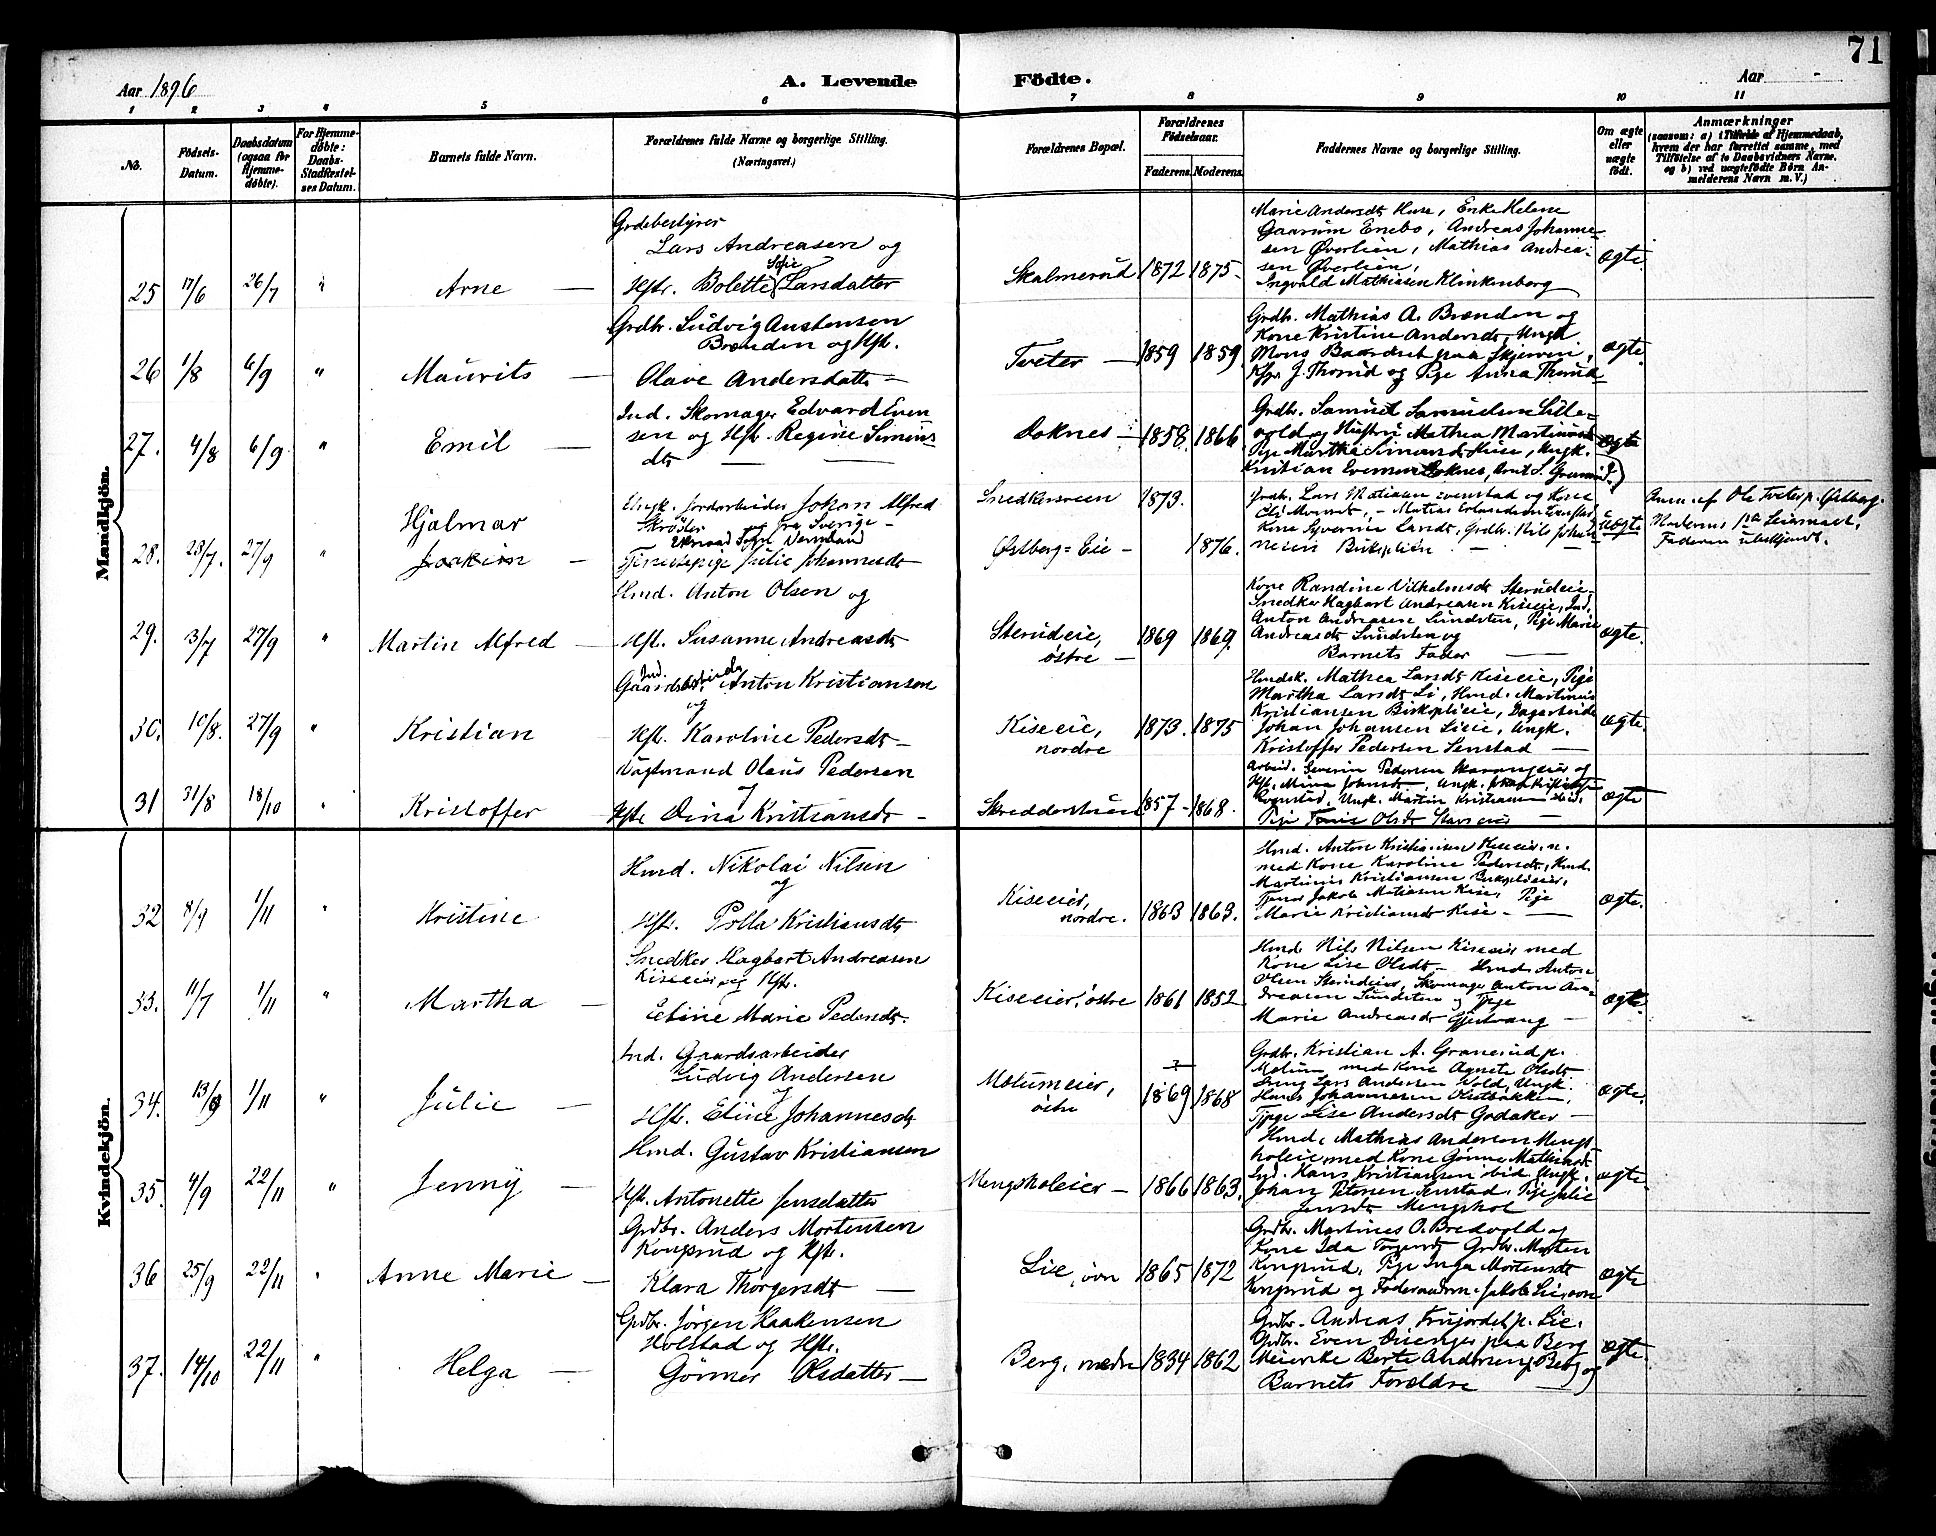 71
Aar 1896
A. Levende
Födte.
Aar
1 2 3 4 5 6 7 8 9 10 11
No.
Födsels-
Datum.
Daabsdatum
(ogsaa for
Hjemme-
døbte).
For Hjemme-
døbte:
Daabs-
Stadfæstel-
ses Datum.
Barnets fulde Navn.
Forældrenes fulde Navne og borgerlige Stilling.
(Næringsvei.)
Forældrenes Bopæl.
Forældrenes
Födselsaar.
Faderens. Moderens.
Faddernes Navne og borgerlige Stilling.
Om ægte
eller
uægte
födt.
Anmærkninger
(saasom: a) i Tilfælde af Hjemmedaab,
hvem der har forrettet samme, med
Tilföielse af to Daabsvidners Navne.
og b) ved uægtefödte Börn An-
melderens Navn m. V.)
Mandkjön.
25 17/6 26/7 " Arne
Grdbestyrer
Lars Andreasen og
Hstr. Bolette Sofie Larsdatter
Skalmerud 1872 1875
Marie Andersdt Huse, Enke Helene
Gaarum Enebo, Andreas Johanne-
sen Øverlien, Mathias Andrea-
sen Øverlien,
Ingvald Mathiasen Klinkenberg
ægte.
26 1/8 6/9 " Maurits
Grdbr. Ludvig Austensen
Brænden og Hst.
Olave Andersdatter
Tveter 1859 1859
Grdbr. Mathias A. Brænden og
Kone Kristine Andersdt, Ungk.
Mons Baardset paa Skjerven,
J. Thorud og Pige Anna Thorud
ægte.
27. 4/8 6/9 " Emil
Ind. Skomager Edvard Even
sen og Hst. Regine Simens-
dtr
Doknes 1858. 1866
Grdbr. Samuel Samuelsen Lille-
vold og Hustru Mathea Martinusd
Pige Martha Simensd Huse, Ungk.
Kristian Evensen Doknes,
ægte
28. 23/7. 27/9 " Hjalmar
Joakim
Ungk. Jordarbeider Johan Alfred
og fra Sverige
Sogn Vermland
Tjenestepige Julie Johannesdt
Snedkersveen 1873.
Østberg-Eie 1876.
Grdbr. Lars Matiasen Evenstad og Kone
Kone Syverine Larsdt, Grdbr. Nils Johan
nesen Biskoplien
uægte
Anm. af Ole Tveter p. Østberg.
Moderens 1ste Leiermaal,
Faderen ubekjendt.
29. 3/7 27/9 " Martin Alfred
Hmd. Anton Olsen og
Hst. Susanne Andreasdt
Sterudeie,
østre 1869 1869.
Kone Randine Vilhelmsdt Sterudeie
Snedker Hagbart Andreasen Kiseeie, Ind.
Anton Andreasen Lundsten, Pige Marie
Andreasdt Lundsten og
Barnets Fader
ægte.
30. 10/8. 27/9 " Kristian
Ind.
Gaardsarbeider Anton Kristiansen
og
Hst. Karoline Pedersdt
Kiseeie,
nordre 1873. 1875
Hmdsk. Mathea Larsdt Kiseeie, Pige
Martha Larsdt Li, Hmd. Martinius
Kristiansen Biskoplieie, Dagarbeider
Johan Johansen Lieie, Ungk.
Kristoffer Pedersen Senstad
ægte.
31 31/8 18/10 " Kristoffer
Vægtmand Olaus Pedersen
og
Hst. Dina Kristiansdt
Skredderstuen 1857 1868.
Arbeid. Severin Pedersen og
Hst. Mina Johnsdt, Ungk.
Evenstad, Ungk. Martin Kristiansen ibid,
Pige Olsdt
ægte
Kvindekjön.
32 8/9 1/11 " Kristine
Hmd. Nikolai Nilsen
og
Hst. Polla Kristiansdt
Kiseeier,
nordre. 1863 1863.
Hmd. Anton Kristiansen Kiseeier n.
med Kone Karoline Pedersdt, Hmd.
Martinius Kristiansen Biskoplieeier,
Tjener Jakob Matiasen Kise, Pige
Marie Kristiansdt Kise
ægte.
33. 11/7 1/11 " Martha
Snedker Hagbart Andreasen
Kiseeier og Hst.
Eline Marie Pedersdt.
Kiseeier, østre 1861 1852
Hmd. Nils Nilsen Kiseeier med
Kone Lise Olsdt, Hmd. Anton
Olsen Sterudeier, Skomager Anton An-
dreasen Lundsten og Pige
Marie Andreasdt Gjestvang
ægte.
34. 13/9 1/11 " Julie
Ind. Gaardsarbeider
Ludvig Andersen
og
Hst. Eline Johannesdt
Motumeier,
østre 1869 1868
Grdbr. Kristian A. Granerud p.
Motum med Kone Agnete Olsdt
Lars Andersen Vold, Ungk.
Hans Johannesen
Pige Lise Andersdt Godaker
ægte.
35. 4/9 22/11 " Jenny
Hmd. Gustav Kristiansen
Hst. Antonette Jensdatter
Mengsholeier 1866 1863.
Hmd. Mathias Andersen Mengs-
holeie med Kone Gønner Mathiasdt
Ind. Hans Kristiansen ibid, Ungk.
Johan Petersen Senstad, Pige Julie
Jensdt Mengshol
ægte.
36 25/9 22/11 " Anne Marie
Grdbr. Anders Mortensen
Konprud og Hst.
Klara Thorgersdt
Lie, øvr 1865 1872
Grdbr. Martines O. Bredvold og
Kone Ida Torgersdt, Grdbr. Morten
Konprud, Pige Inga Mortensdt
Konprud og Føderaadsm. Jakob Lie, øvre
ægte
37. 14/10 22/11 " Helga
Grdbr. Jörgen Haakensen
Holstad og Hst.
Gönner Olsdatter
Berg, nedre 1834 1862
Grdbr. Andreas Frujordet p. Lie.
Grdbr. Even Disenger paa Berg
Meierske Berte Andersen p. Berg og
Barnets Forældre
ægte.